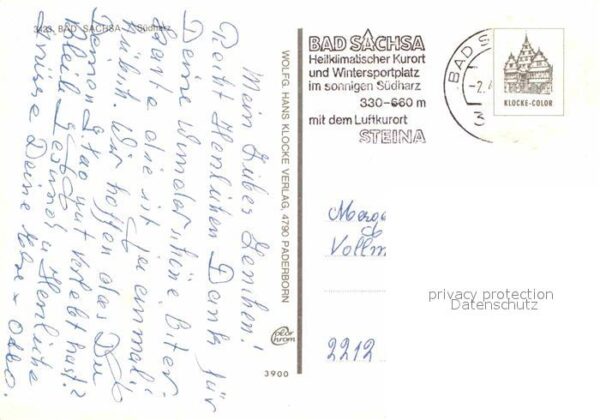 3423 BAD SACHSA Südharz
Mein liebes Lenchen!
Recht Herzlichen Dank für
Deine
Karte die ist ja einmalig
hübsch. Wir hoffen das Du
Deinen gut verlebt hast?
Bleib Gesund u. Herzliche
Grüsse Deine
WOLFG. HANS KLOCKE VERLAG, 4790 PADERBORN
color
chrom
3900
BAD SACHSA
Heilklimatischer Kurort
und Wintersportplatz
im sonnigen Südharz
330-660 m
mit dem Luftkurort
STEINA
BAD S
-2.
3
KLOCKE-COLOR
Vollm
privacy protection
Datenschutz
2212